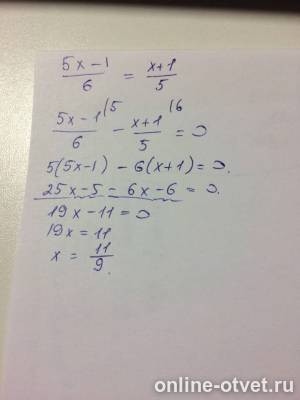 5x-1/6 = x+1/5
5x-1/6 |5 - x+1/5 |6 = 0
5(5x-1) - 6(x+1) = 0.
25x-5 - 6x-6 = 0.
19x-11 = 0
19x = 11
x = 11/9.
online-otvet.ru